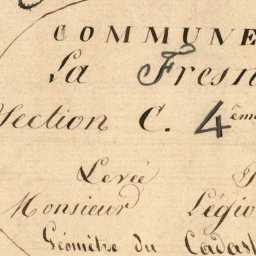 COMMUNE
La Fresn
Section C. 4ème
Levée
Monsieur Légio
Géomètre du Cadast